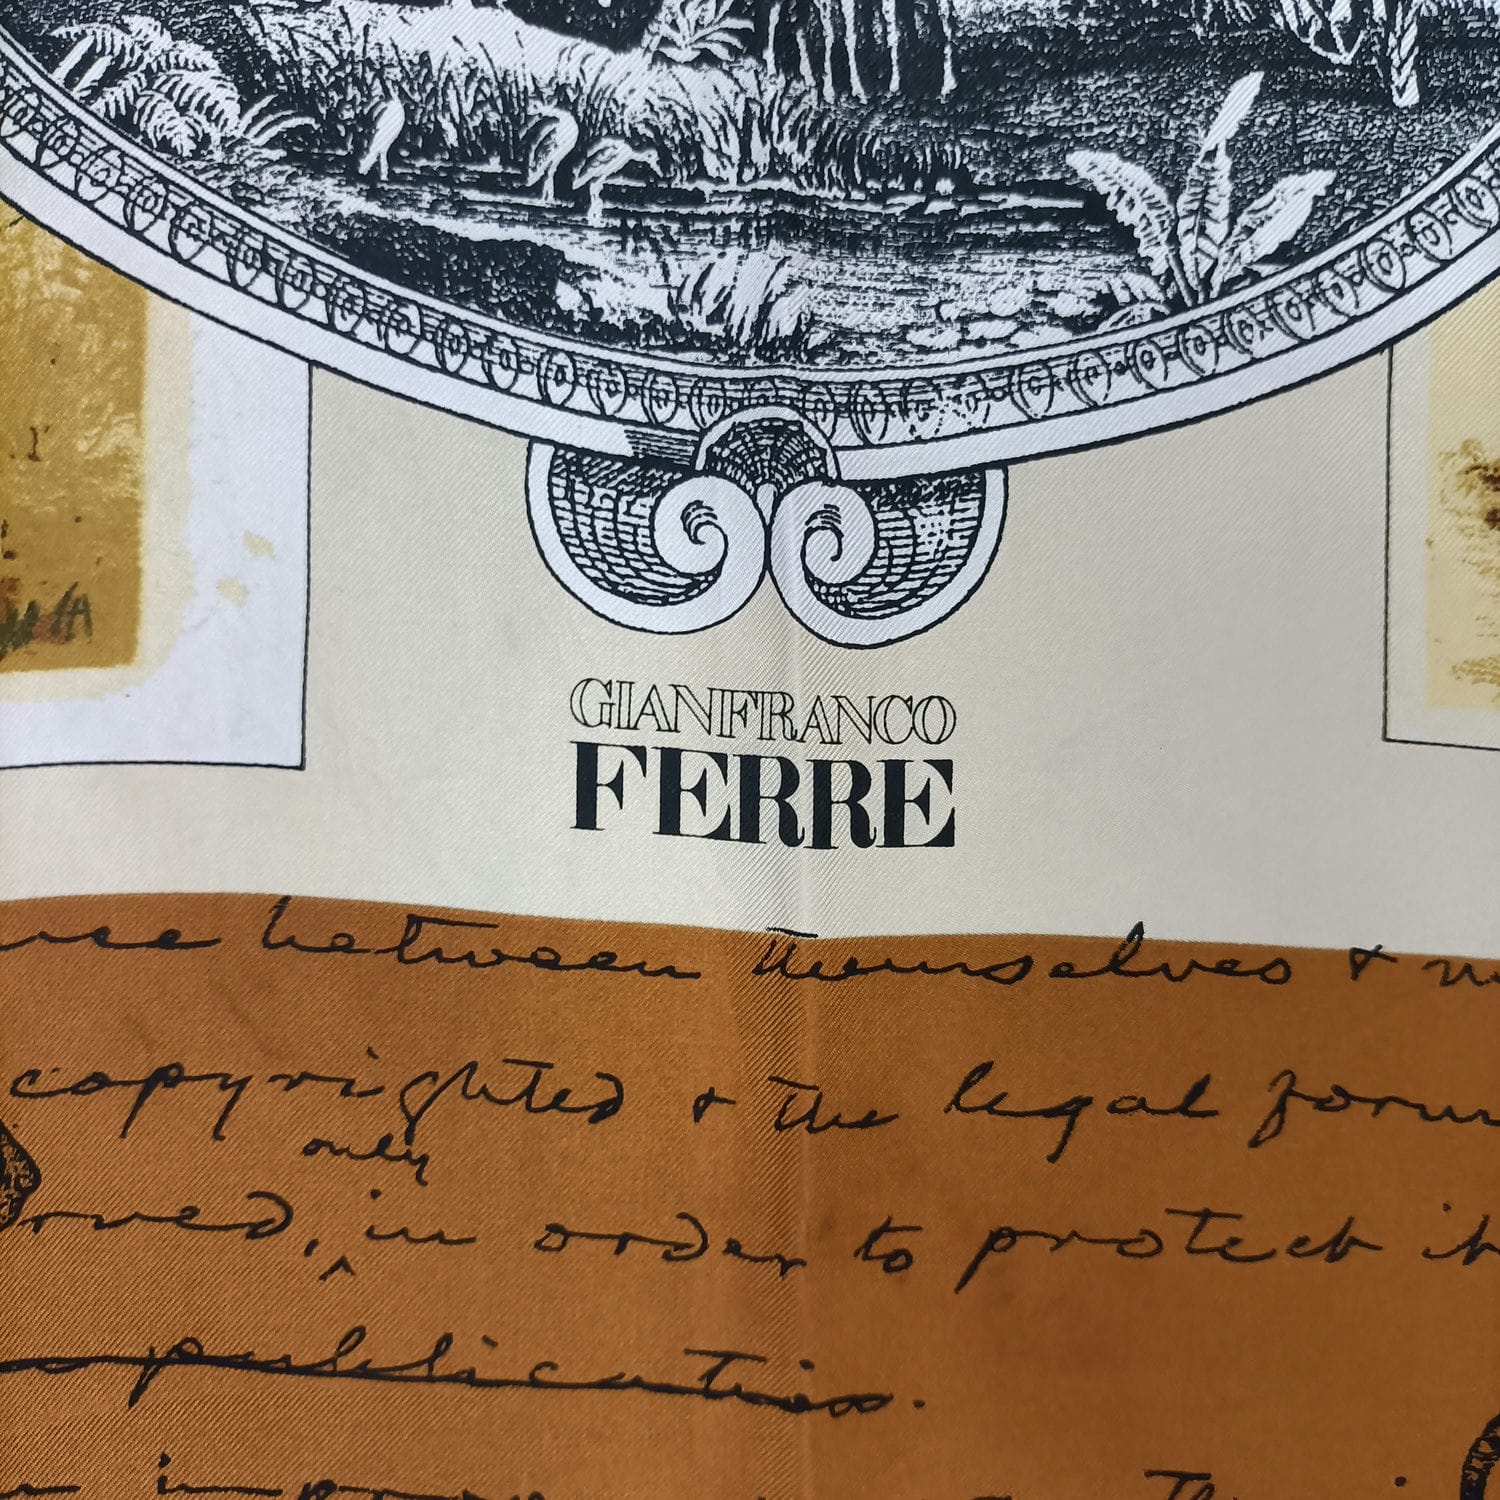 GIANFRANCO
FERRE
between themselves &
copyrighted & the legal
only
in order to protect it
publication.